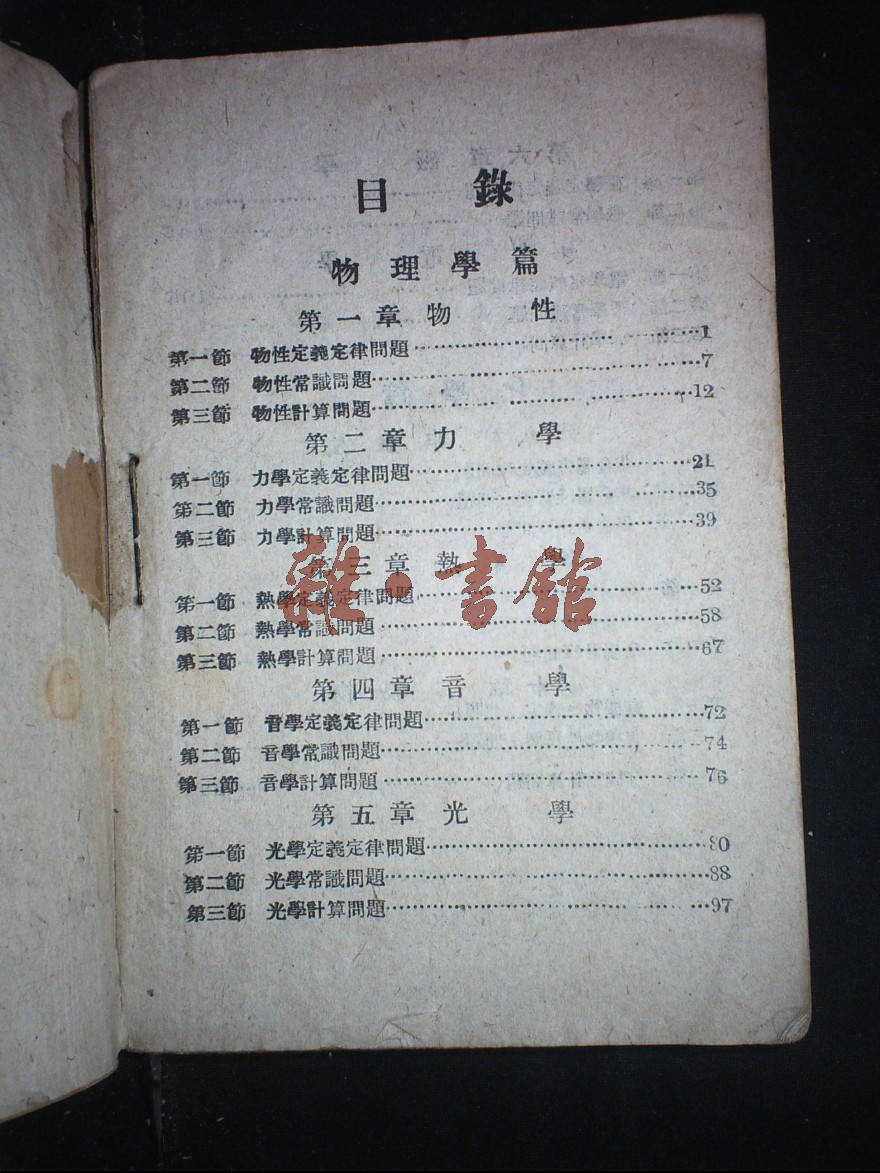 目錄
物理學篇
第一章物性
第一節 物性定義定律問題……1
第二節 物性常識問題……7
第三節 物性計算問題……12
第二章力學
第一節 力學定義定律問題……21
第二節 力學常識問題……35
第三節 力學計算問題……39
第三章熱學
第一節 熱學定義定律問題……52
第二節 熱學常識問題……58
第三節 熱學計算問題……67
第四章音學
第一節 音學定義定律問題……72
第二節 音學常識問題……74
第三節 音學計算問題……76
第五章光學
第一節 光學定義定律問題……80
第二節 光學常識問題……88
第三節 光學計算問題……97
雜·書館